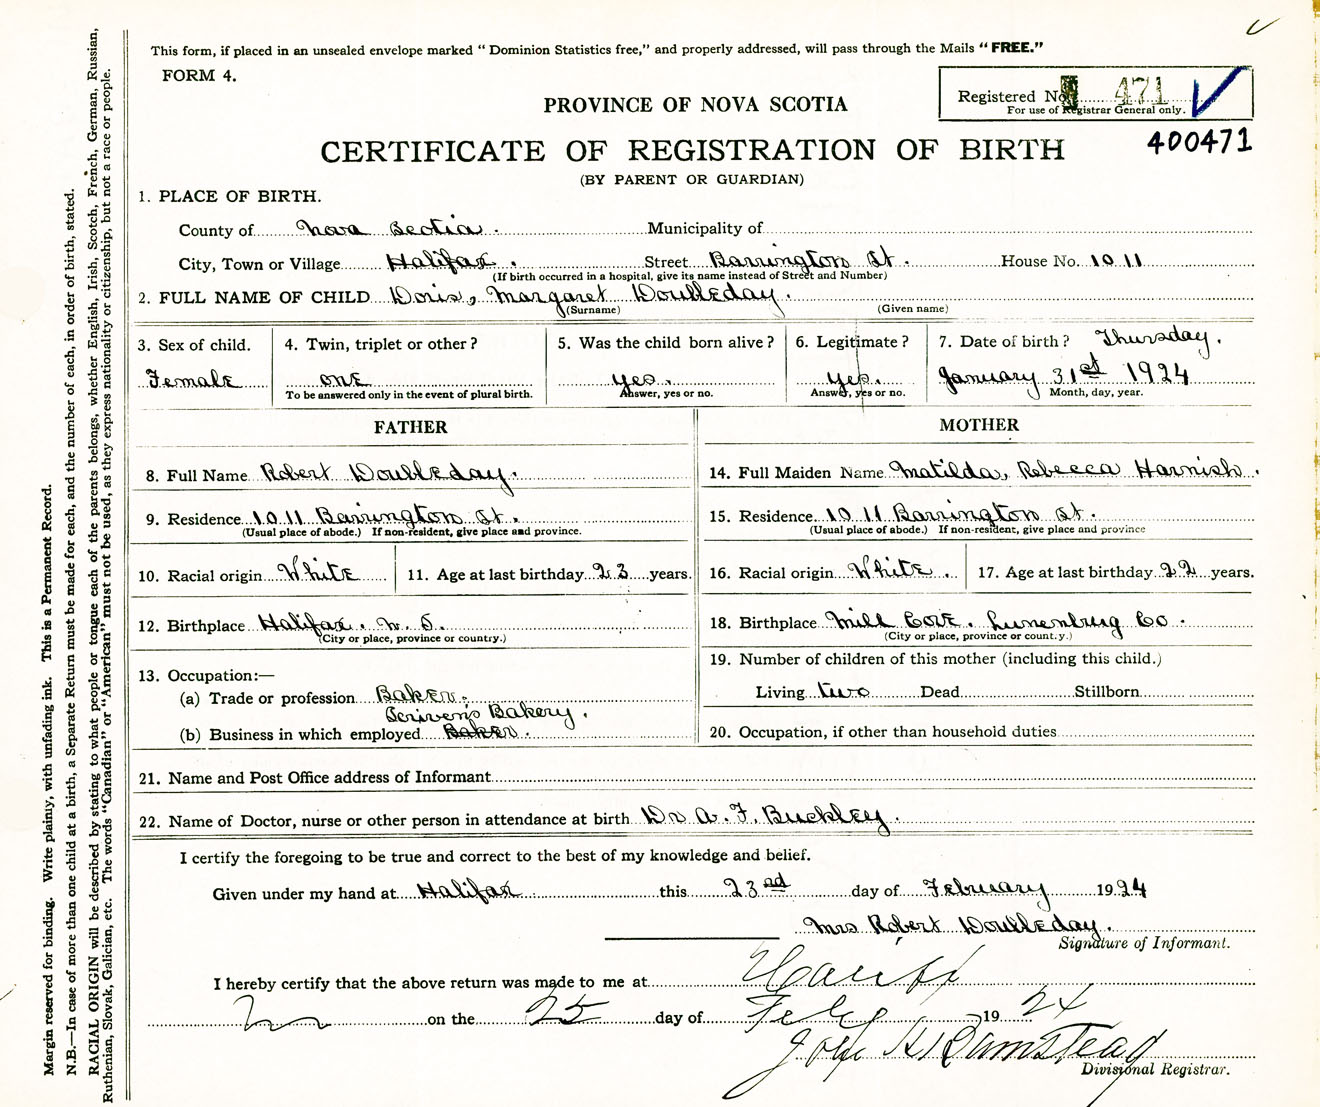 This form, if placed in an unsealed envelope marked “ Dominion Statistics free,” and properly addressed, will pass through the Mails “ FREE.”
FORM 4.
Registered No. 471
For use of Registrar General only.
PROVINCE OF NOVA SCOTIA
400471
CERTIFICATE OF REGISTRATION OF BIRTH
(BY PARENT OR GUARDIAN)
1. PLACE OF BIRTH.
County of Nova Scotia. Municipality of
City, Town or Village Halifax. Street Barrington St. House No. 1011
(If birth occurred in a hospital, give its name instead of Street and Number)
2. FULL NAME OF CHILD Doris, Margaret Doubleday.
(Surname) (Given name)
3. Sex of child. 4. Twin, triplet or other? 5. Was the child born alive? 6. Legitimate? 7. Date of birth? Thursday.
Female one yes. yes. January 31st 1924
To be answered only in the event of plural birth. Answer, yes or no. Answer, yes or no. Month, day, year.
FATHER MOTHER
8. Full Name Robert Doubleday. 14. Full Maiden Name Matilda, Rebecca Harnish.
9. Residence 1011 Barrington St. 15. Residence 1011 Barrington St.
(Usual place of abode.) If non-resident, give place and province. (Usual place of abode.) If non-resident, give place and province
10. Racial origin White 11. Age at last birthday 23 years. 16. Racial origin White. 17. Age at last birthday 22 years.
12. Birthplace Halifax. N. S. 18. Birthplace Mill Cove. Lunenburg Co.
(City or place, province or country.) (City or place, province or country.)
19. Number of children of this mother (including this child.)
13. Occupation:—
(a) Trade or profession Baker. Living two Dead Stillborn
Scriven's Bakery.
(b) Business in which employed Baker. 20. Occupation, if other than household duties
21. Name and Post Office address of Informant
22. Name of Doctor, nurse or other person in attendance at birth Dr A. F. Buckley.
I certify the foregoing to be true and correct to the best of my knowledge and belief.
Given under my hand at Halifax this 23nd day of February 1924
Mrs Robert Doubleday.
Signature of Informant.
I hereby certify that the above return was made to me at Halifx
on the 25 day of Feby 19 24
John H Bamstead
Divisional Registrar.
Margin reserved for binding. Write plainly, with unfading ink. This is a Permanent Record.
N.B.—In case of more than one child at a birth, a Separate Return must be made for each, and the number of each, in order of birth, stated.
RACIAL ORIGIN will be described by stating to what people or tongue each of the parents belongs, whether English, Irish, Scotch, French, German, Russian,
Ruthenian, Slovak, Galician, etc. The words “Canadian” or “American” must not be used, as they express nationality or citizenship, but not a race or people.